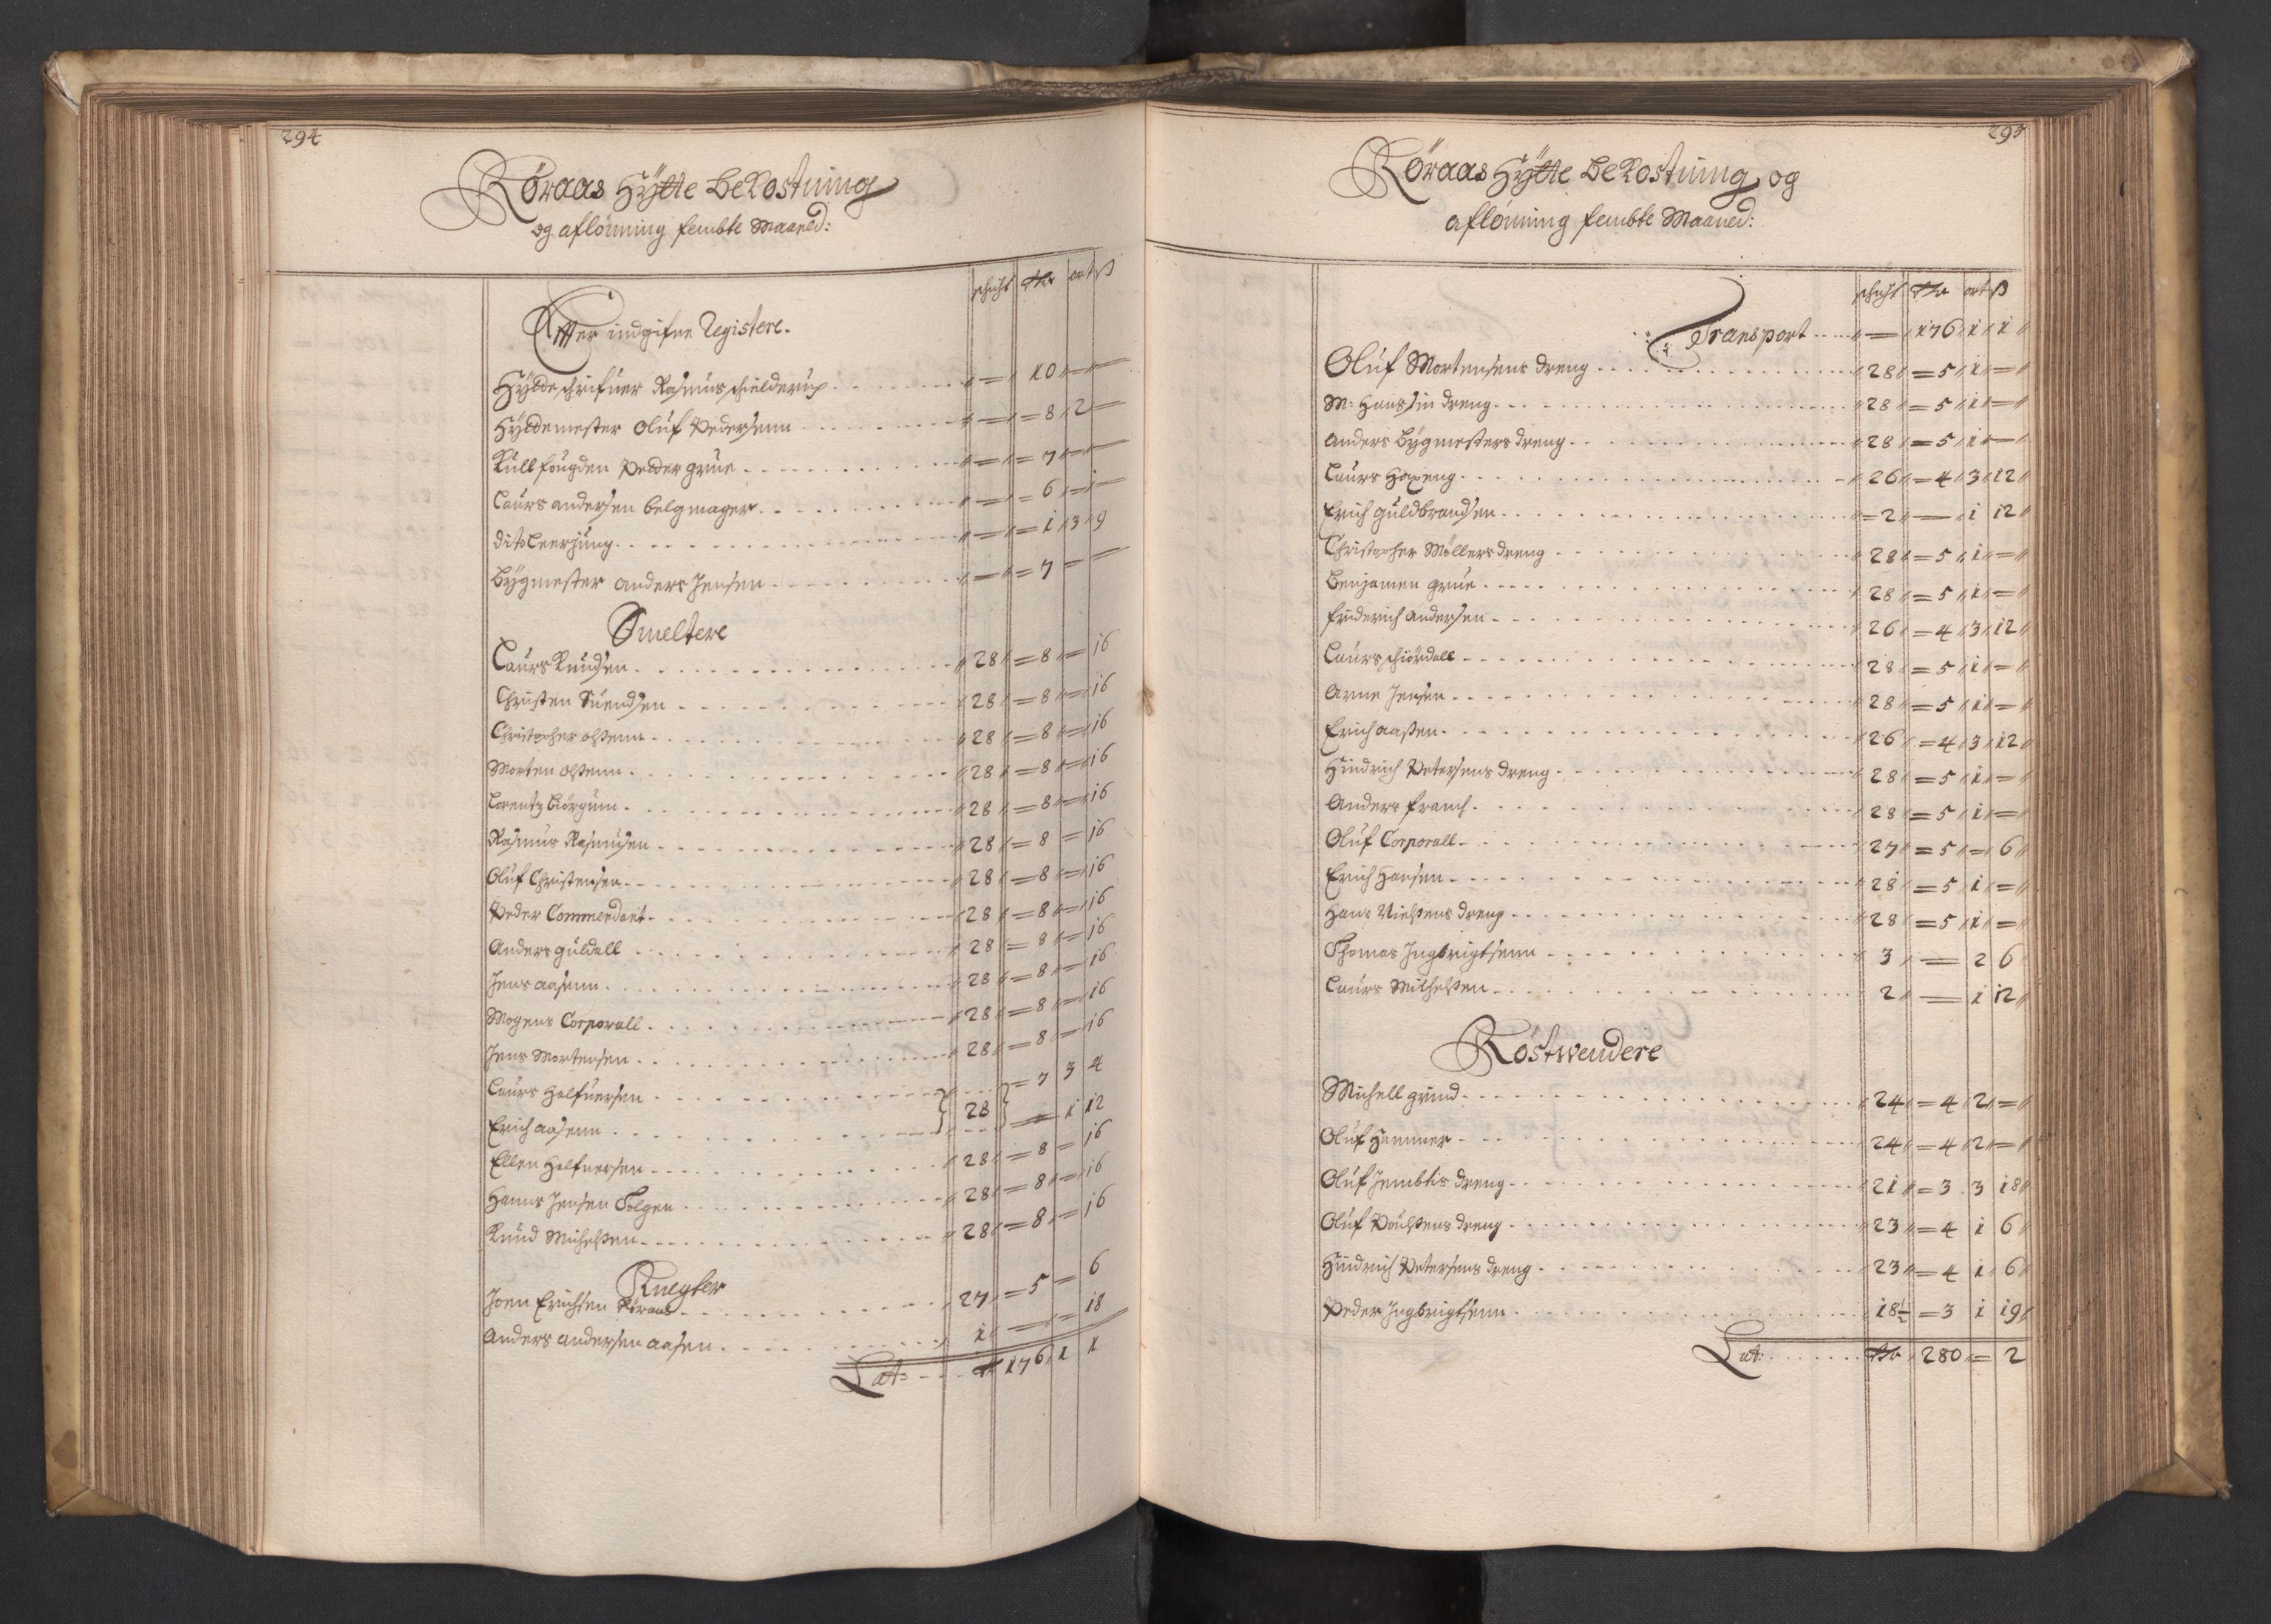 294
Röraas Hÿtte beKostning
og aflönning fembte Maaned:
schicht Rdr ort ß
Effter indgifne Registere.
Hÿtteschrifuer Rasmus schielderup 10
Hÿttemester Oluf Pedersenn 8 2
Kullfougden Pedder grue 7
Laurs andersen belgmager 6
dito Leerjung 1 3 9
bÿgmester anders Jensen 7
Smeltere
Laurs Knudsen 28 = 8 = 16
Christen Suendsen 28 = 8 = 16
Christopher olßenn 28 = 8 = 16
Morten olßenn 28 = 8 = 16
Lorentz biörgum 28 = 8 = 16
Rasmus Rasmusen 28 = 8 = 16
Oluf Christensen 28 = 8 = 16
Peder Commendant 28 = 8 = 16
Anders guldall 28 = 8 = 16
Jens aasenn 28 = 8 = 16
Mogens Corporall 28 = 8 = 16
Jens Mortensen 28 = 8 = 16
Laurs Halfuersen = 7 3 4
28
Erich aasenn 1 12
Ellen Halfuersen 28 = 8 = 16
Hanns Jensen Solgen 28 = 8 = 16
Knud Michelßen 28 = 8 = 16
Knegter
Joen Erichsen Röraas 27 = 5 = 6
Anders andersen aasen 1 = 18
Lat: Rdr 176 1 1
295
Röraas Hÿtte beKostning og
aflönning fembte Maaned:
schicht Rdr ort ß
Transport 176 1 1
Oluf Mortensens dreng 28 = 5 1 =
M: Hans sin dreng 28 = 5 1 =
anders bÿgmesters dreng 28 = 5 1 =
Laurs Hoxeng 26 = 4 3 12
Erich guldbrandsen = 2 1 12
Christopher Möllers dreng 28 = 5 1 =
benjamen grue 28 = 5 1 =
friderich andersen 26 = 4 3 12
Laurs schiördall 28 = 5 1 =
Arne Jensen 28 = 5 1 =
Erich aaßen 26 = 4 3 12
Hindrich Petersens dreng 28 = 5 1 =
Anders franch 28 = 5 1 =
Oluf Corporall 27 = 5 = 6
Erich Hansen 28 = 5 1 =
Hans Nielßens dreng 28 = 5 1 =
Thomas Ingbrigtsenn 3 2 6
Laurs Michelßen 2 1 12
Röstwendere
Michell grind 24 = 4 2 =
Oluf Hammer 24 = 4 2 =
Oluf Jembtis dreng 21 = 3 3 18
Oluf Poulßens dreng 23 = 4 1 6
Hindrich Petersens dreng 23 = 4 1 6
Peder Ingbrigtsenn 18½ = 3 1 19
Lat: Rdr 280 = 2